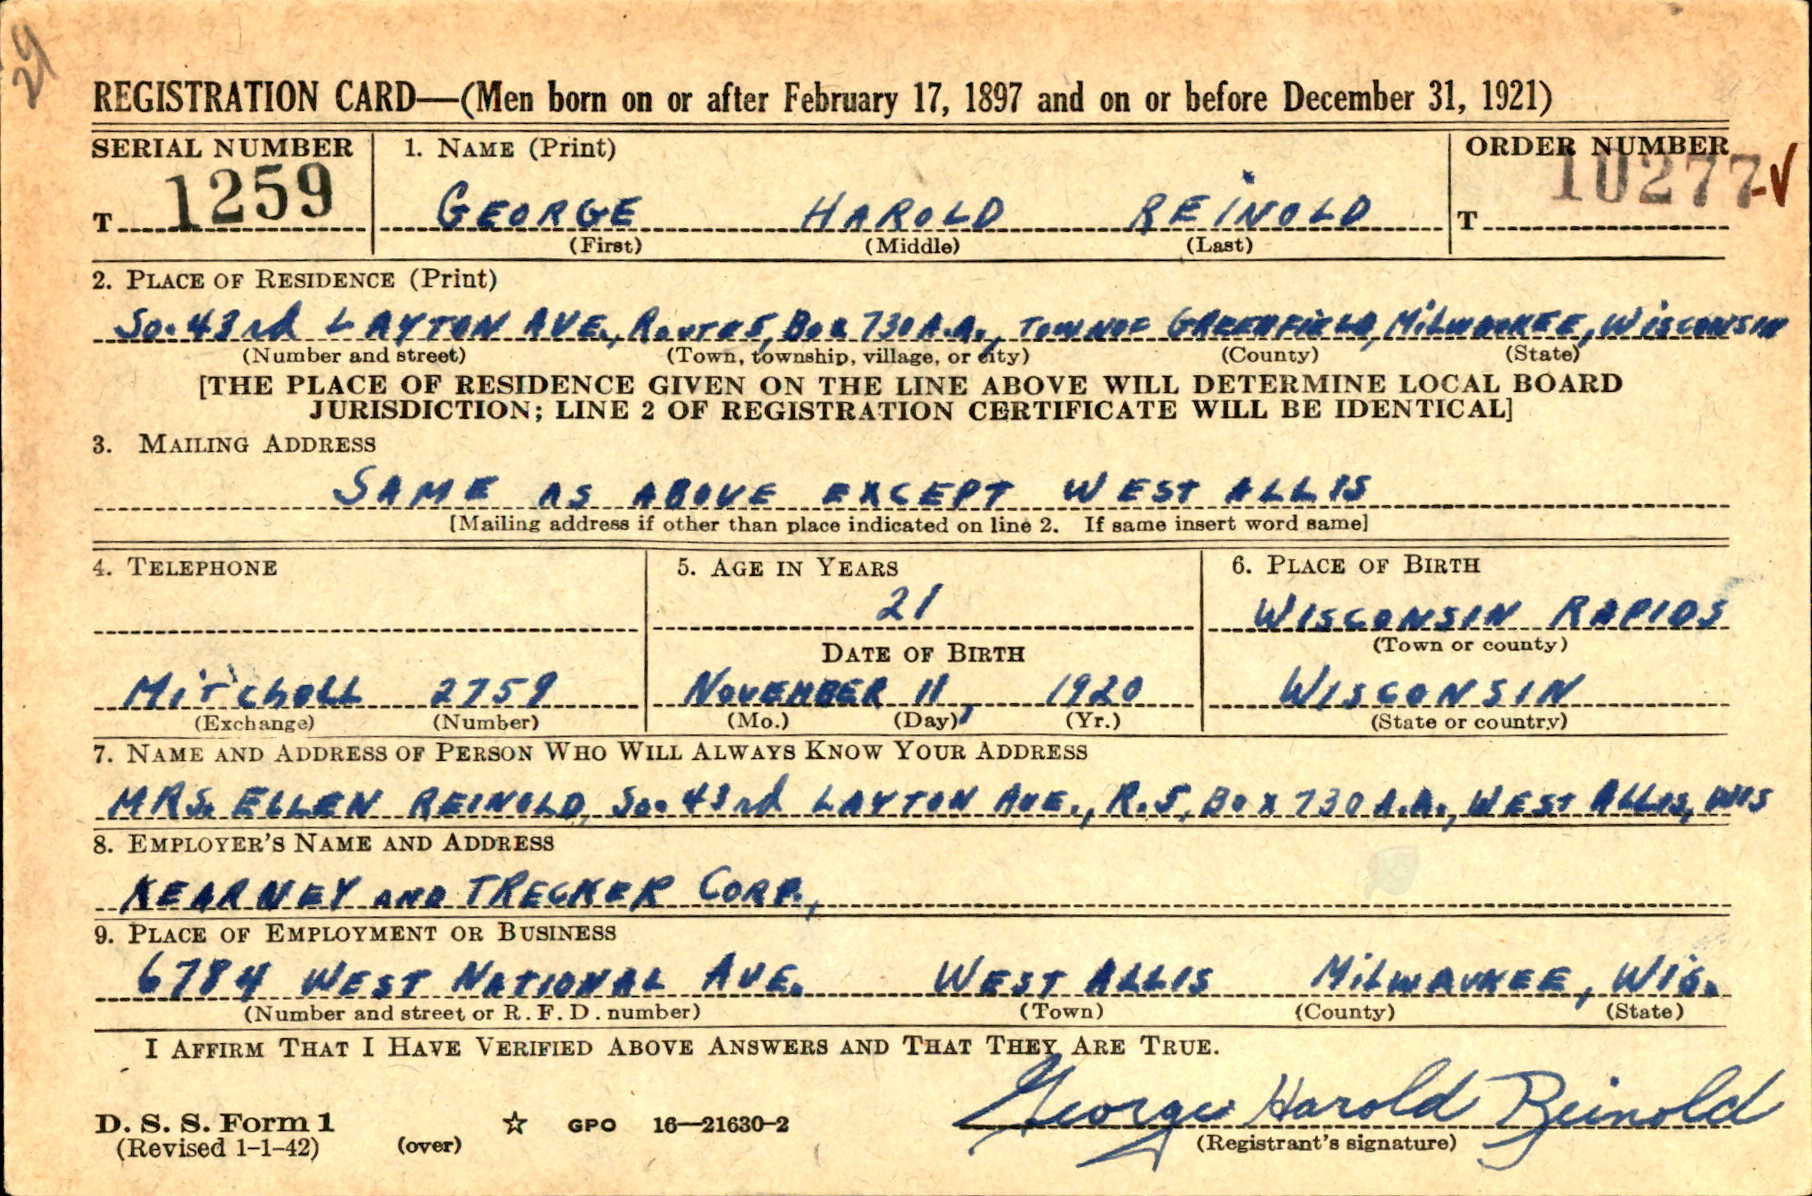 29
REGISTRATION CARD—(Men born on or after February 17, 1897 and on or before December 31, 1921)
SERIAL NUMBER 1. NAME (Print) ORDER NUMBER
T 1259 GEORGE HAROLD REINOLD T 10277 ✓
(First) (Middle) (Last)
2. PLACE OF RESIDENCE (Print)
So. 43rd LAYTON AVE., Route 5, Box 730 A.A., TOWN OF GREENFIELD, MILWAUKEE, WISCONSIN
(Number and street) (Town, township, village, or city) (County) (State)
[THE PLACE OF RESIDENCE GIVEN ON THE LINE ABOVE WILL DETERMINE LOCAL BOARD
JURISDICTION; LINE 2 OF REGISTRATION CERTIFICATE WILL BE IDENTICAL]
3. MAILING ADDRESS
SAME AS ABOVE EXCEPT WEST ALLIS
[Mailing address if other than place indicated on line 2. If same insert word same]
4. TELEPHONE 5. AGE IN YEARS 6. PLACE OF BIRTH
21 WISCONSIN RAPIDS
DATE OF BIRTH (Town or county)
Mitchell 2759 NOVEMBER 11, 1920 WISCONSIN
(Exchange) (Number) (Mo.) (Day) (Yr.) (State or country)
7. NAME AND ADDRESS OF PERSON WHO WILL ALWAYS KNOW YOUR ADDRESS
MRS. ELLEN REINOLD, So. 43rd LAYTON AVE., R.5, Box 730 A.A., WEST ALLIS, WIS
8. EMPLOYER'S NAME AND ADDRESS
KEARNEY AND TRECKER CORP.,
9. PLACE OF EMPLOYMENT OR BUSINESS
6784 WEST NATIONAL AVE. WEST ALLIS MILWAUKEE, WIS.
(Number and street or R. F. D. number) (Town) (County) (State)
I AFFIRM THAT I HAVE VERIFIED ABOVE ANSWERS AND THAT THEY ARE TRUE.
George Harold Reinold
D. S. S. Form 1 ☆ GPO 16—21630-2
(Revised 1-1-42) (over) (Registrant's signature)